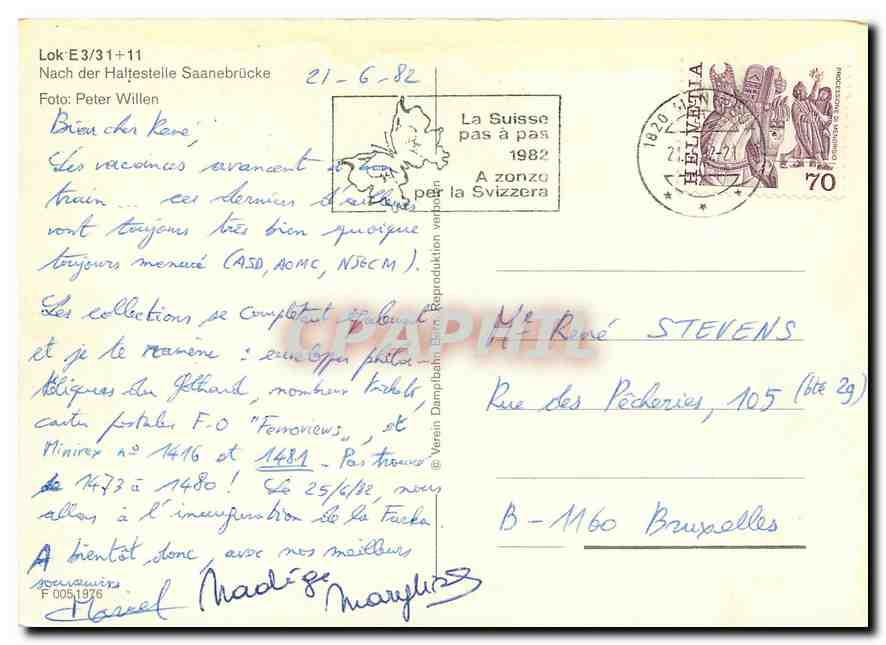 Lok E 3/3 1+11
Nach der Haltestelle Saanebrücke
Foto: Peter Willen
21-6-82
La Suisse
pas à pas
1982
A zonzo
per la Svizzera
1820
HELVETIA
PROCESSIONE DI MENDRISIO
70
Bien cher René,
Les vacances avancent bon
train... ces derniers d'ailleurs
vont toujours très bien quoique
toujours menacé (ASD, AOMC, NStCM).
Les collections se complètent
et je te ramène : enveloppes phila-
téliques du Gothard, nombreux tickets,
cartes postales F-O "Ferroviews", et
Minirex n° 1416 et 1481 - Pas trouvé
le 1473 à 1480 ! Le 25/6/82, nous
allons à l'inauguration de la Furka.
A bientôt donc, avec nos meilleurs
souvenirs
Marcel Nadège
F 0051976
© Verein Dampfbahn Bern. Reproduktion verboten
Mr René STEVENS
Rue des Pêcheries, 105 (bte 29)
B-1160 Bruxelles
CPAPHIL